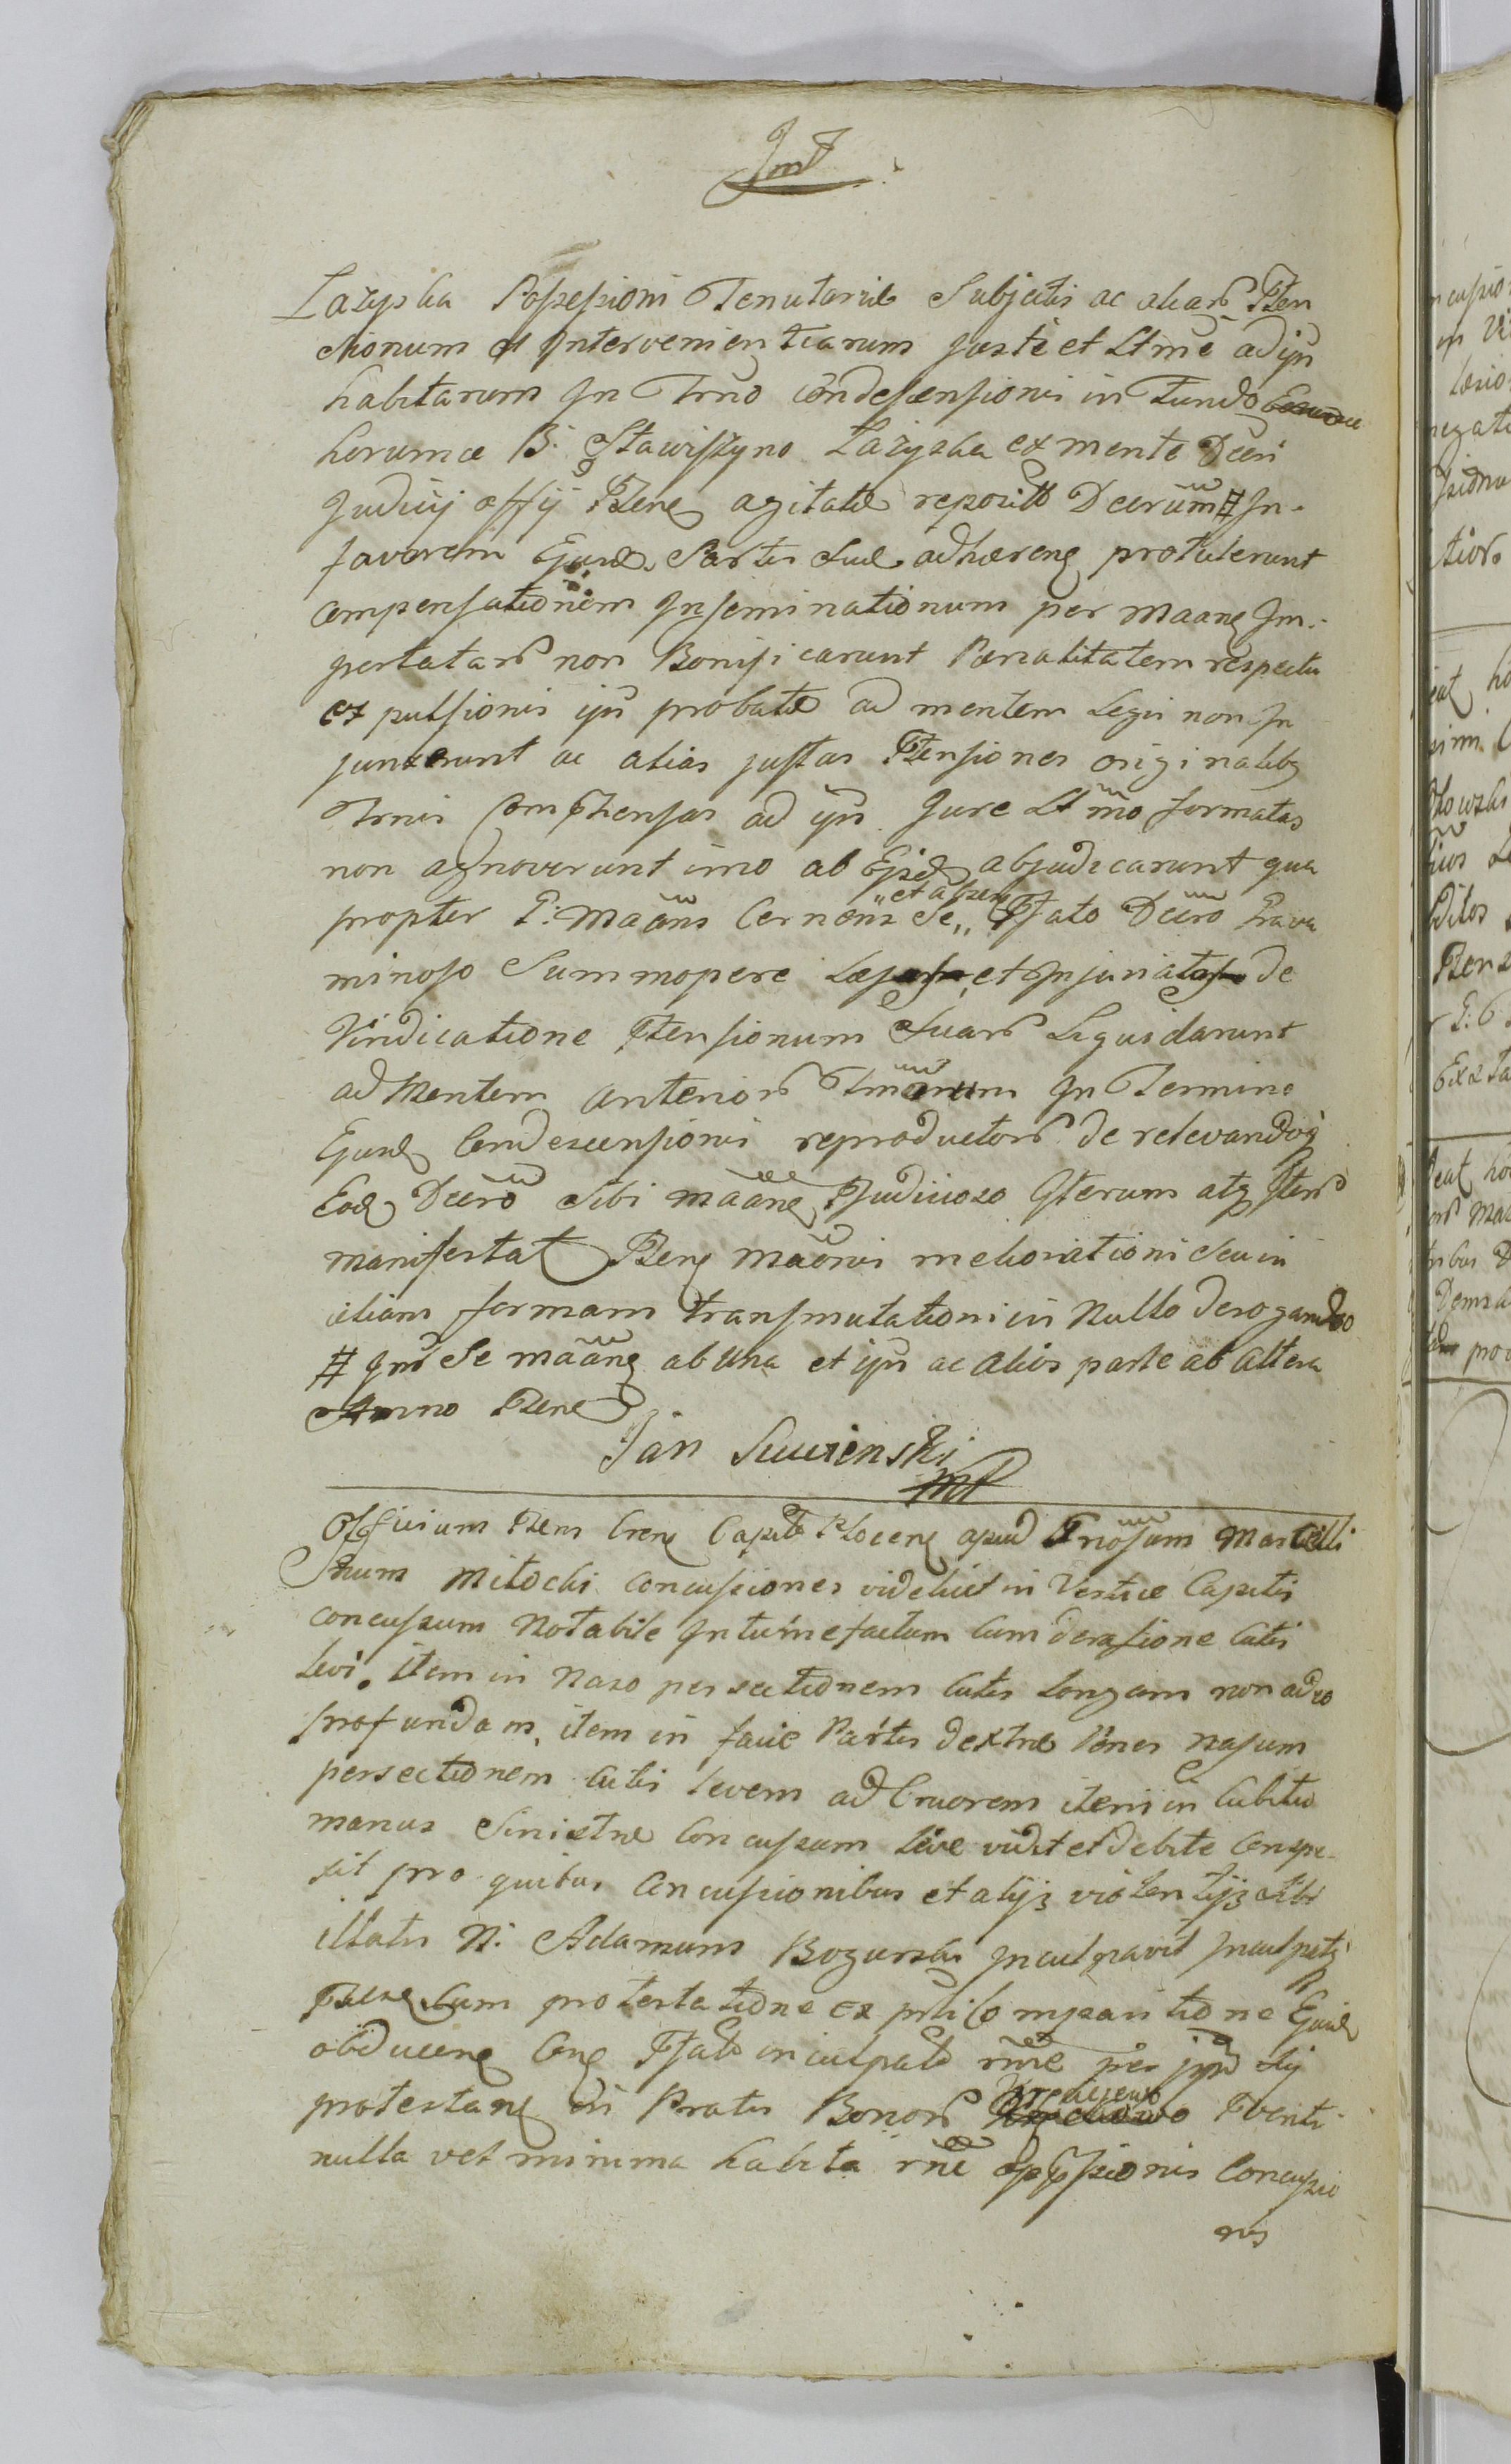 Łazyska Possessioni Tenutariæ Subjectis ac aliar Pten
ctionum et Intervenientiarum juste et Ltme ad ijs
habitarum In Trno Condescensionis in Fundo
horumce B. Stawiszyno Łazyska ex mente Decri
Judicij offij Psens agitatæ reposito Decrum # In
favorem Ejusd Partis Suæ adhærens protulerunt
compensationem Inseminationum per Maans Im-
pertatar non Bonificarunt Pœnalitatem respectu
expulsionis ijs probatæ ad mentem Legis non In
junxerunt ac alias justas Ptensiones originalibz
Trnis Comphensas ad ijs Jure Ltmo formatas
non agnoverunt imo ab Ejsd abjudicarunt qua
propter P: Maans Cernens Se „et absen„ Pfato Decro Grava
minoso Summopere et Injuriat de
Vindicatione Ptensionum Suar Liquidarunt
ad Mentem anterior In Termino
Ejusd Condescensionis reproductor de relevandoq
Eod Decro Sibi Maans Pjudicioso Iterum atq Iter
manifestat Psens Maonis meliorationi Seu in
aliam formam transmutationi in Nullo derogando
# Inr Se Maans ab una et ijs ac alios parte ab altera
Anno Psens
Jan
Officium Psens Crens Capitle Plocens apud Gnosum Marcelli
num Mitocki concussiones videlicet in Vertice Capitis
concussum Notabile Intumefactum Cum derasione Cutis
levi. item in Naso persectionem Cutis longam non adeo
profundam, item in facie Partis dextræ Penes nasum
persectionem Cutis levem ad Cruorem item in Cubitu
manus Sinistræ Concussum leve vidit et debite Conspe-
xit pro quibus Concussionibus et alijs violentijs Sibi
illatis N: Adamum Bogurski Inculpavit Inculpatq
Psens Cum protestatione ex pticompsaritione Ejusd
obducens Cons Pfato inculpato rne per ipm Sij
protestans in Pratis Bonor Fventi
nulla vel minima habita rne oppssionis Concussio
nis